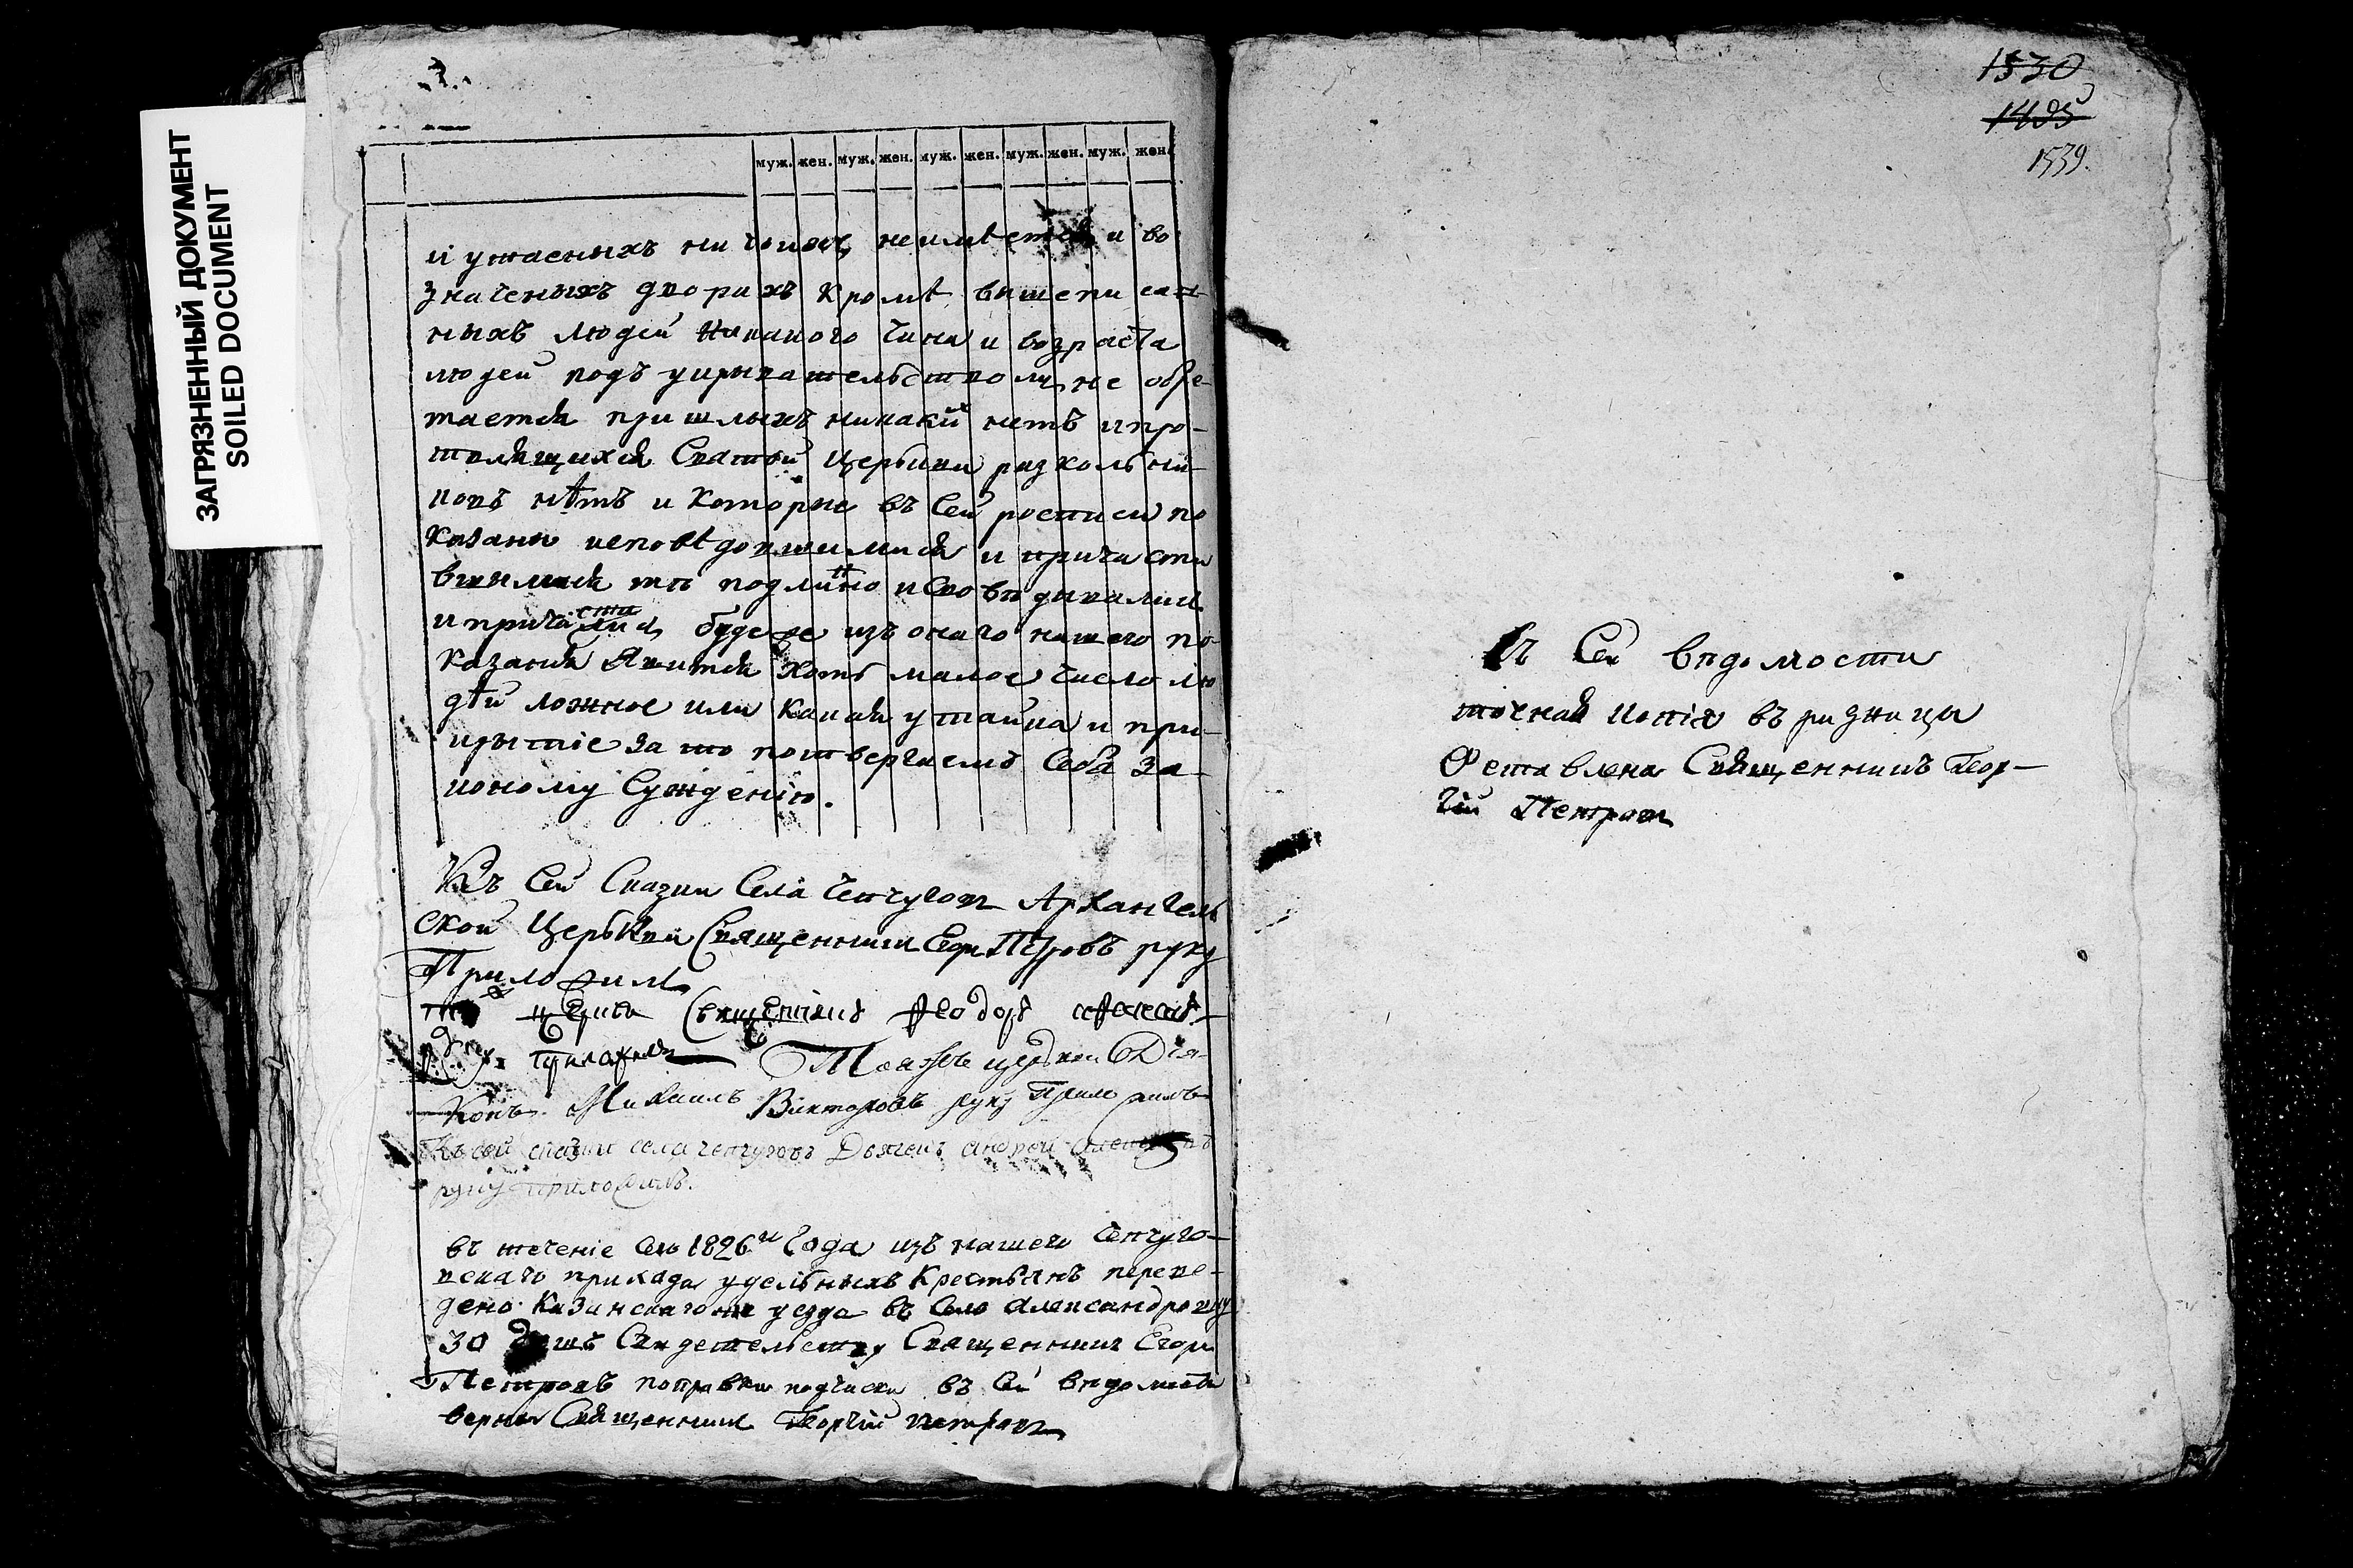 ЗАГРЯЗНЕННЫЙ ДОКУМЕНТ
SOILED DOCUMENT
муж. жен. муж. жен. муж. жен. муж. жен. муж. жен.
и утаеныхъ ни чыихъ неимѣется и во
значеныхъ дворахъ кромѣ вышеписан-
ныхъ людей никакого чина и возраста
людей подъ укрывательствомъ не обре-
тается пришлыхъ никакй нетъ и про-
тивящихся Святой Церькви разкольни-
ковъ нѣтъ и которые въ сей росписи по
казаны исповѣдовшимися и причасти
вшимися тѣ подлинно исповѣдывались
и причастились буде же изъ онаго нашего по-
казания явится хоть малое число лю
дѣй ложное или какая утайка и при-
крытіе за то потвергаемъ себя за-
коному суждению.
Къ сей сказки села Чепчуговъ Архангель
ской Церькви Священникъ Егоръ Петровъ руку
Приложилъ
Священникъ Феодоръ
приложилъ Тояжъ церькви Дія-
конъ Михаилъ Викторовъ руку Приложилъ
Къ сей сказки села чепчуговъ Дьячекъ андрей
руку приложилъ.
въ течение сего 1826го Года изъ нашего Чепчуго-
вскаго прихада удельныхъ Крестьянъ переве-
дено Казанскагожъ уезда въ село александровку
30 душъ Свидетельству Священникъ Егоръ
Петровъ поправки подчиски въ сей ведомости
верны Священникъ Георгій Петровъ
1530
1495
1539.
Съ Сей ведомости
точная копія въ ризницы
Оставлена Священникъ Геор-
гій Петровъ